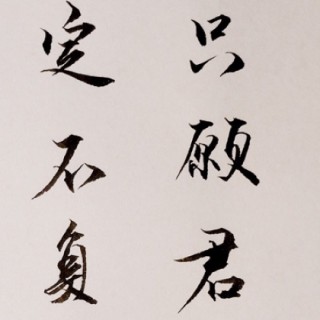 只願君
定不負